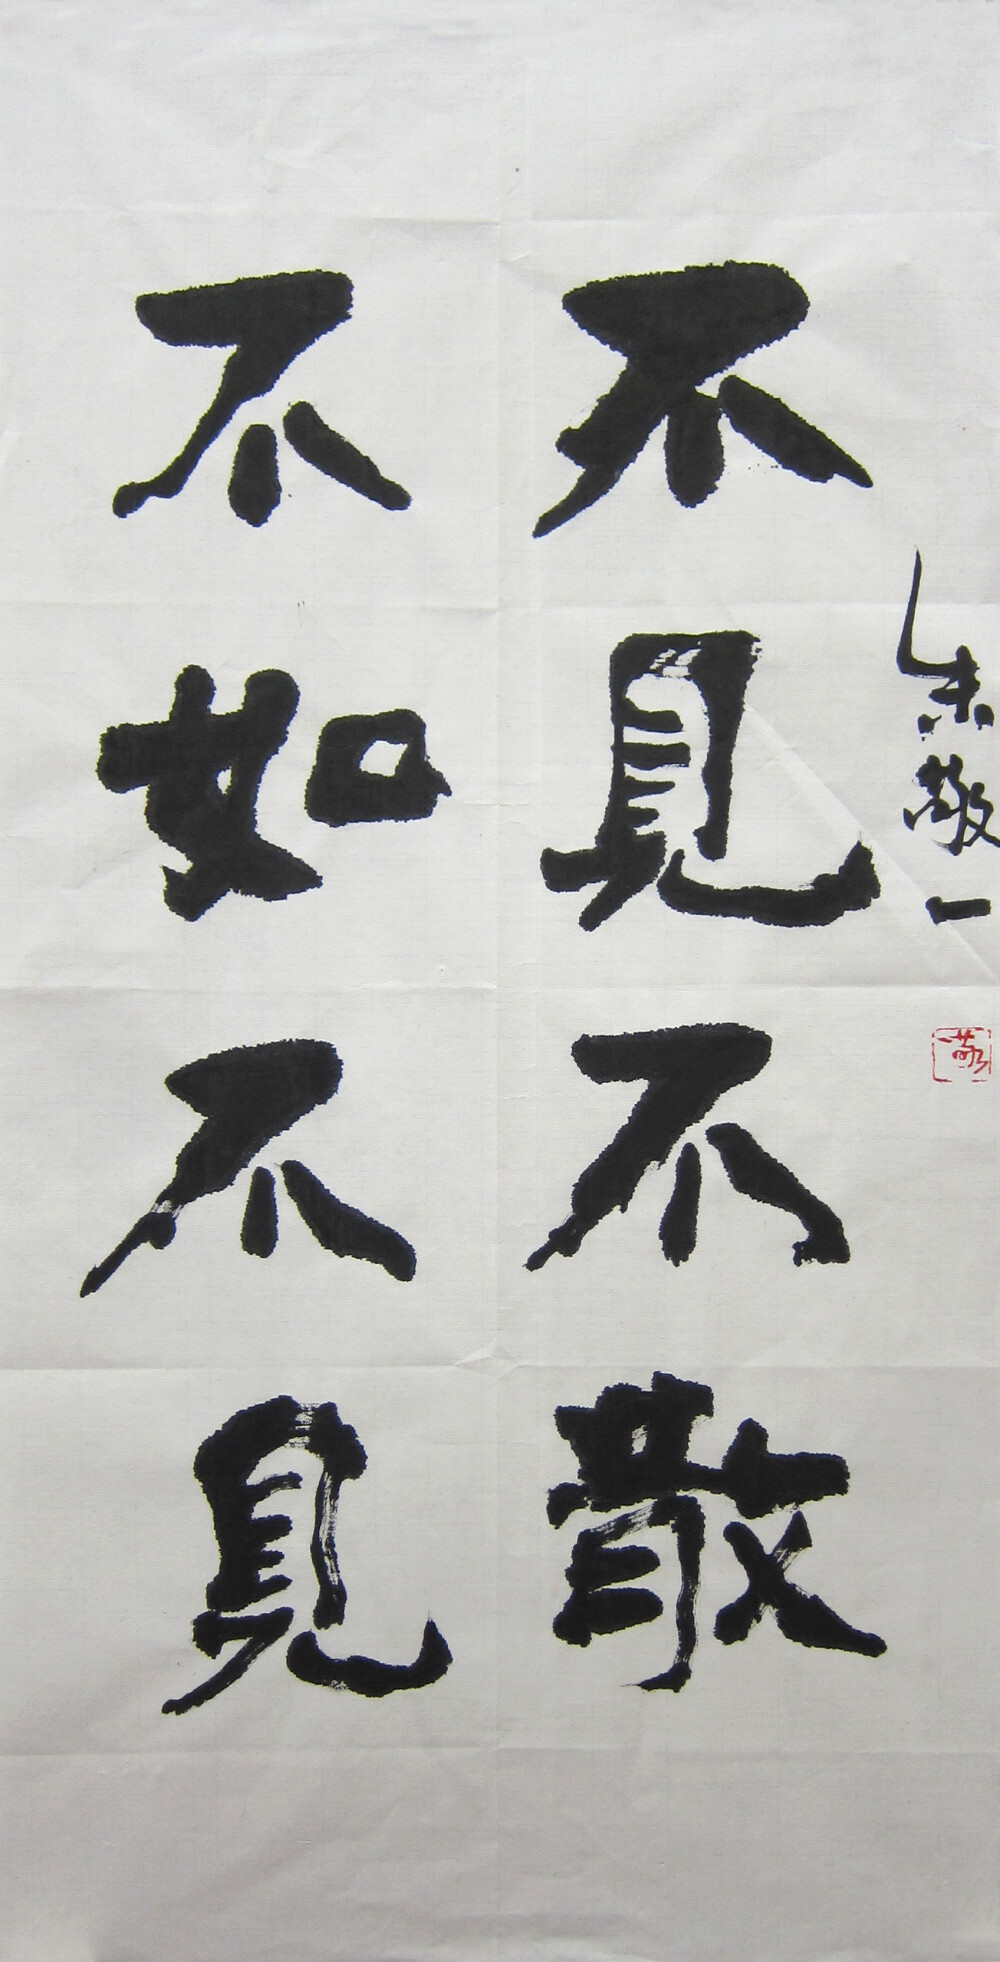 不見不散
不如不見
朱敬一
敬